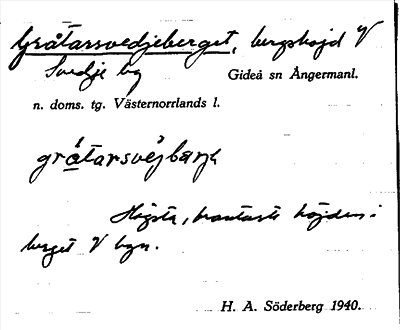 Gråtarsvedjeberget, bergshöjd V
Svedje by Gideå sn Ångermanl.
n. doms. tg. Västernorrlands l.
gråtarsvéjbarjh
Högsta, brantaste höjden i
berget V byn.
H. A. Söderberg 1940.